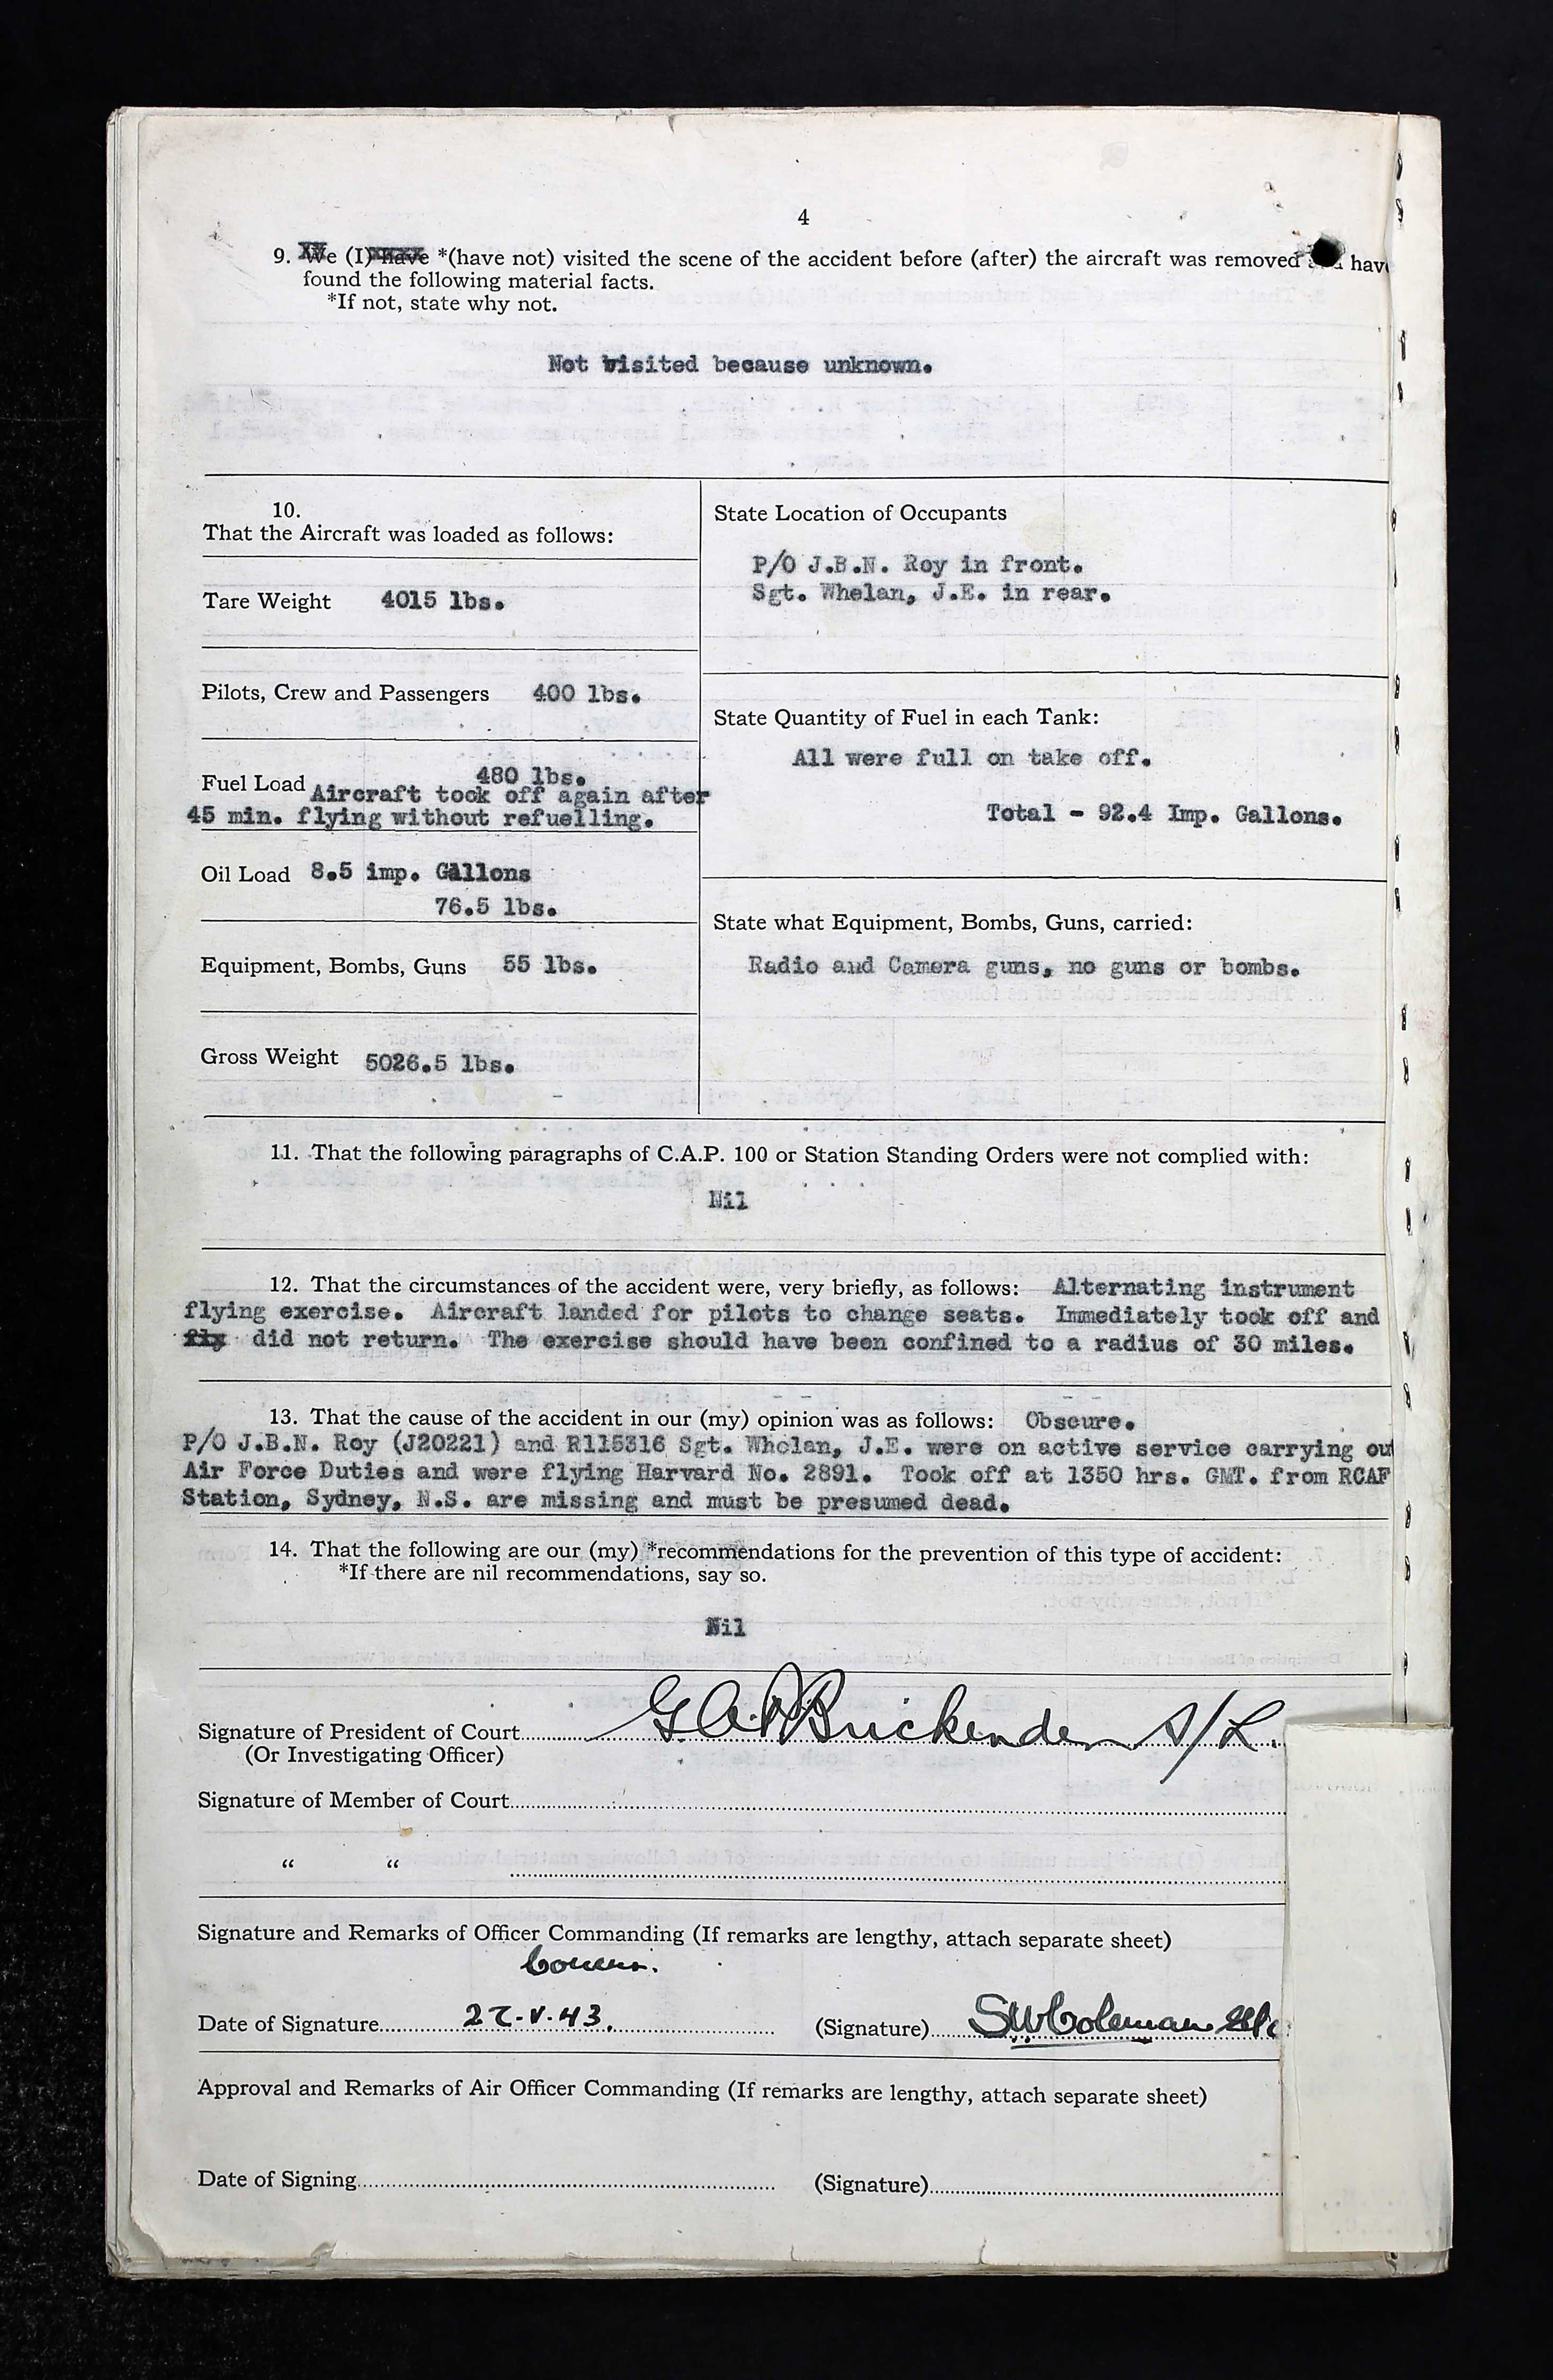 4
9. We (I) have *(have not) visited the scene of the accident before (after) the aircraft was removed and have
found the following material facts.
*If not, state why not.
Not visited because unknown.
10.
That the Aircraft was loaded as follows:
Tare Weight 4015 lbs.
Pilots, Crew and Passengers 400 lbs.
480 lbs.
Fuel Load Aircraft took off again after
45 min. flying without refuelling.
Oil Load 8.5 imp. Gallons
76.5 lbs.
Equipment, Bombs, Guns 55 lbs.
Gross Weight 5026.5 lbs.
State Location of Occupants
P/O J.B.N. Roy in front.
Sgt. Whelan, J.E. in rear.
State Quantity of Fuel in each Tank:
All were full on take off.
Total - 92.4 Imp. Gallons.
State what Equipment, Bombs, Guns, carried:
Radio and Camera guns, no guns or bombs.
11. That the following paragraphs of C.A.P. 100 or Station Standing Orders were not complied with:
Nil
12. That the circumstances of the accident were, very briefly, as follows: Alternating instrument
flying exercise. Aircraft landed for pilots to change seats. Immediately took off and
did not return. The exercise should have been confined to a radius of 30 miles.
13. That the cause of the accident in our (my) opinion was as follows: Obscure.
P/O J.B.N. Roy (J20221) and R115316 Sgt. Whelan, J.E. were on active service carrying out
Air Force Duties and were flying Harvard No. 2891. Took off at 1350 hrs. GMT. from RCAF
Station, Sydney, N.S. are missing and must be presumed dead.
14. That the following are our (my) *recommendations for the prevention of this type of accident:
*If there are nil recommendations, say so.
Nil
Signature of President of Court G.A. Brickenden S/L.
(Or Investigating Officer)
Signature of Member of Court
" "
Signature and Remarks of Officer Commanding (If remarks are lengthy, attach separate sheet)
Concur.
Date of Signature 27.V.43. (Signature) SW Coleman
Approval and Remarks of Air Officer Commanding (If remarks are lengthy, attach separate sheet)
Date of Signing (Signature)